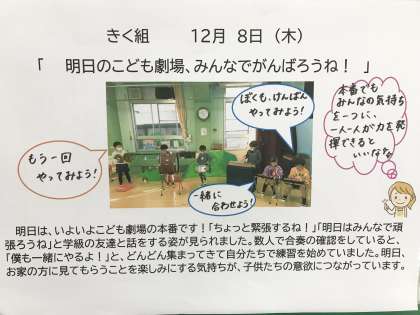 きく組　12月 8日（木）
「 明日のこども劇場、みんなでがんばろうね！ 」
もう一回
やってみよう！
ぼくも、けんばん
やってみよう！
一緒に
合わせよう！
本番でも
みんなの気持ち
を一つに、
一人一人が力を発
揮できると
いいな。
明日は、いよいよこども劇場の本番です！「ちょっと緊張するね！」「明日はみんなで頑
張ろうね」と学級の友達と話をする姿が見られました。数人で合奏の確認をしていると、
「僕も一緒にやるよ！」と、どんどん集まってきて自分たちで練習を始めていました。明日、
お家の方に見てもらうことを楽しみにする気持ちが、子供たちの意欲につながっています。